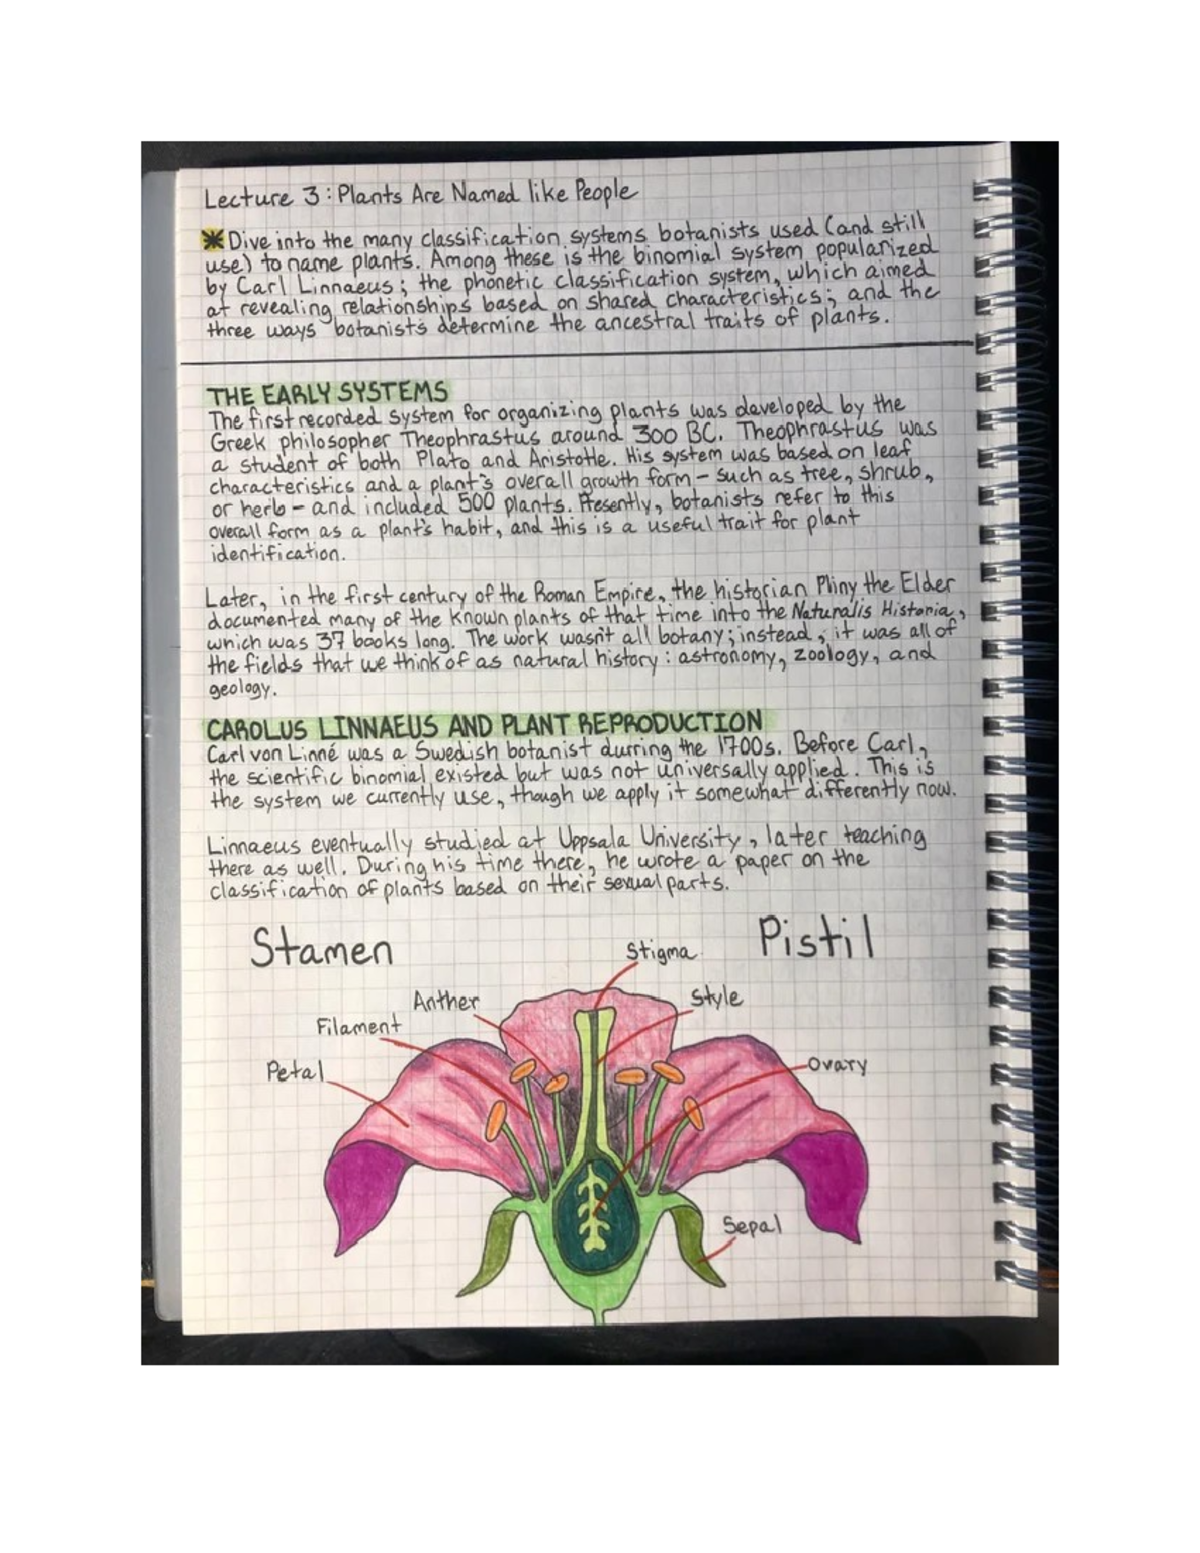 Lecture 3: Plants Are Named like People
Dive into the many classification systems botanists used (and still
use) to name plants. Among these is the binomial system popularized
by Carl Linnaeus; the phonetic classification system, which aimed
at revealing relationships based on shared characteristics; and the
three ways botanists determine the ancestral traits of plants.
THE EARLY SYSTEMS
The first recorded system for organizing plants was developed by the
Greek philosopher Theophrastus around 300 BC. Theophrastus was
a student of both Plato and Aristotle. His system was based on leaf
characteristics and a plant's overall growth form - such as tree, shrub,
or herb - and included 500 plants. Presently, botanists refer to this
overall form as a plant's habit, and this is a useful trait for plant
identification.
Later, in the first century of the Roman Empire, the historian Pliny the Elder
documented many of the known plants of that time into the Naturalis Historia,
which was 37 books long. The work wasn't all botany; instead, it was all of
the fields that we think of as natural history: astronomy, zoology, and
geology.
CAROLUS LINNAEUS AND PLANT REPRODUCTION
Carl von Linné was a Swedish botanist durring the 1700s. Before Carl,
the scientific binomial existed but was not universally applied. This is
the system we currently use, though we apply it somewhat differently now.
Linnaeus eventually studied at Uppsala University, later teaching
there as well. During his time there, he wrote a paper on the
classification of plants based on their sexual parts.
Stamen
Pistil
Stigma
Anther
Style
Filament
Petal
Ovary
Sepal